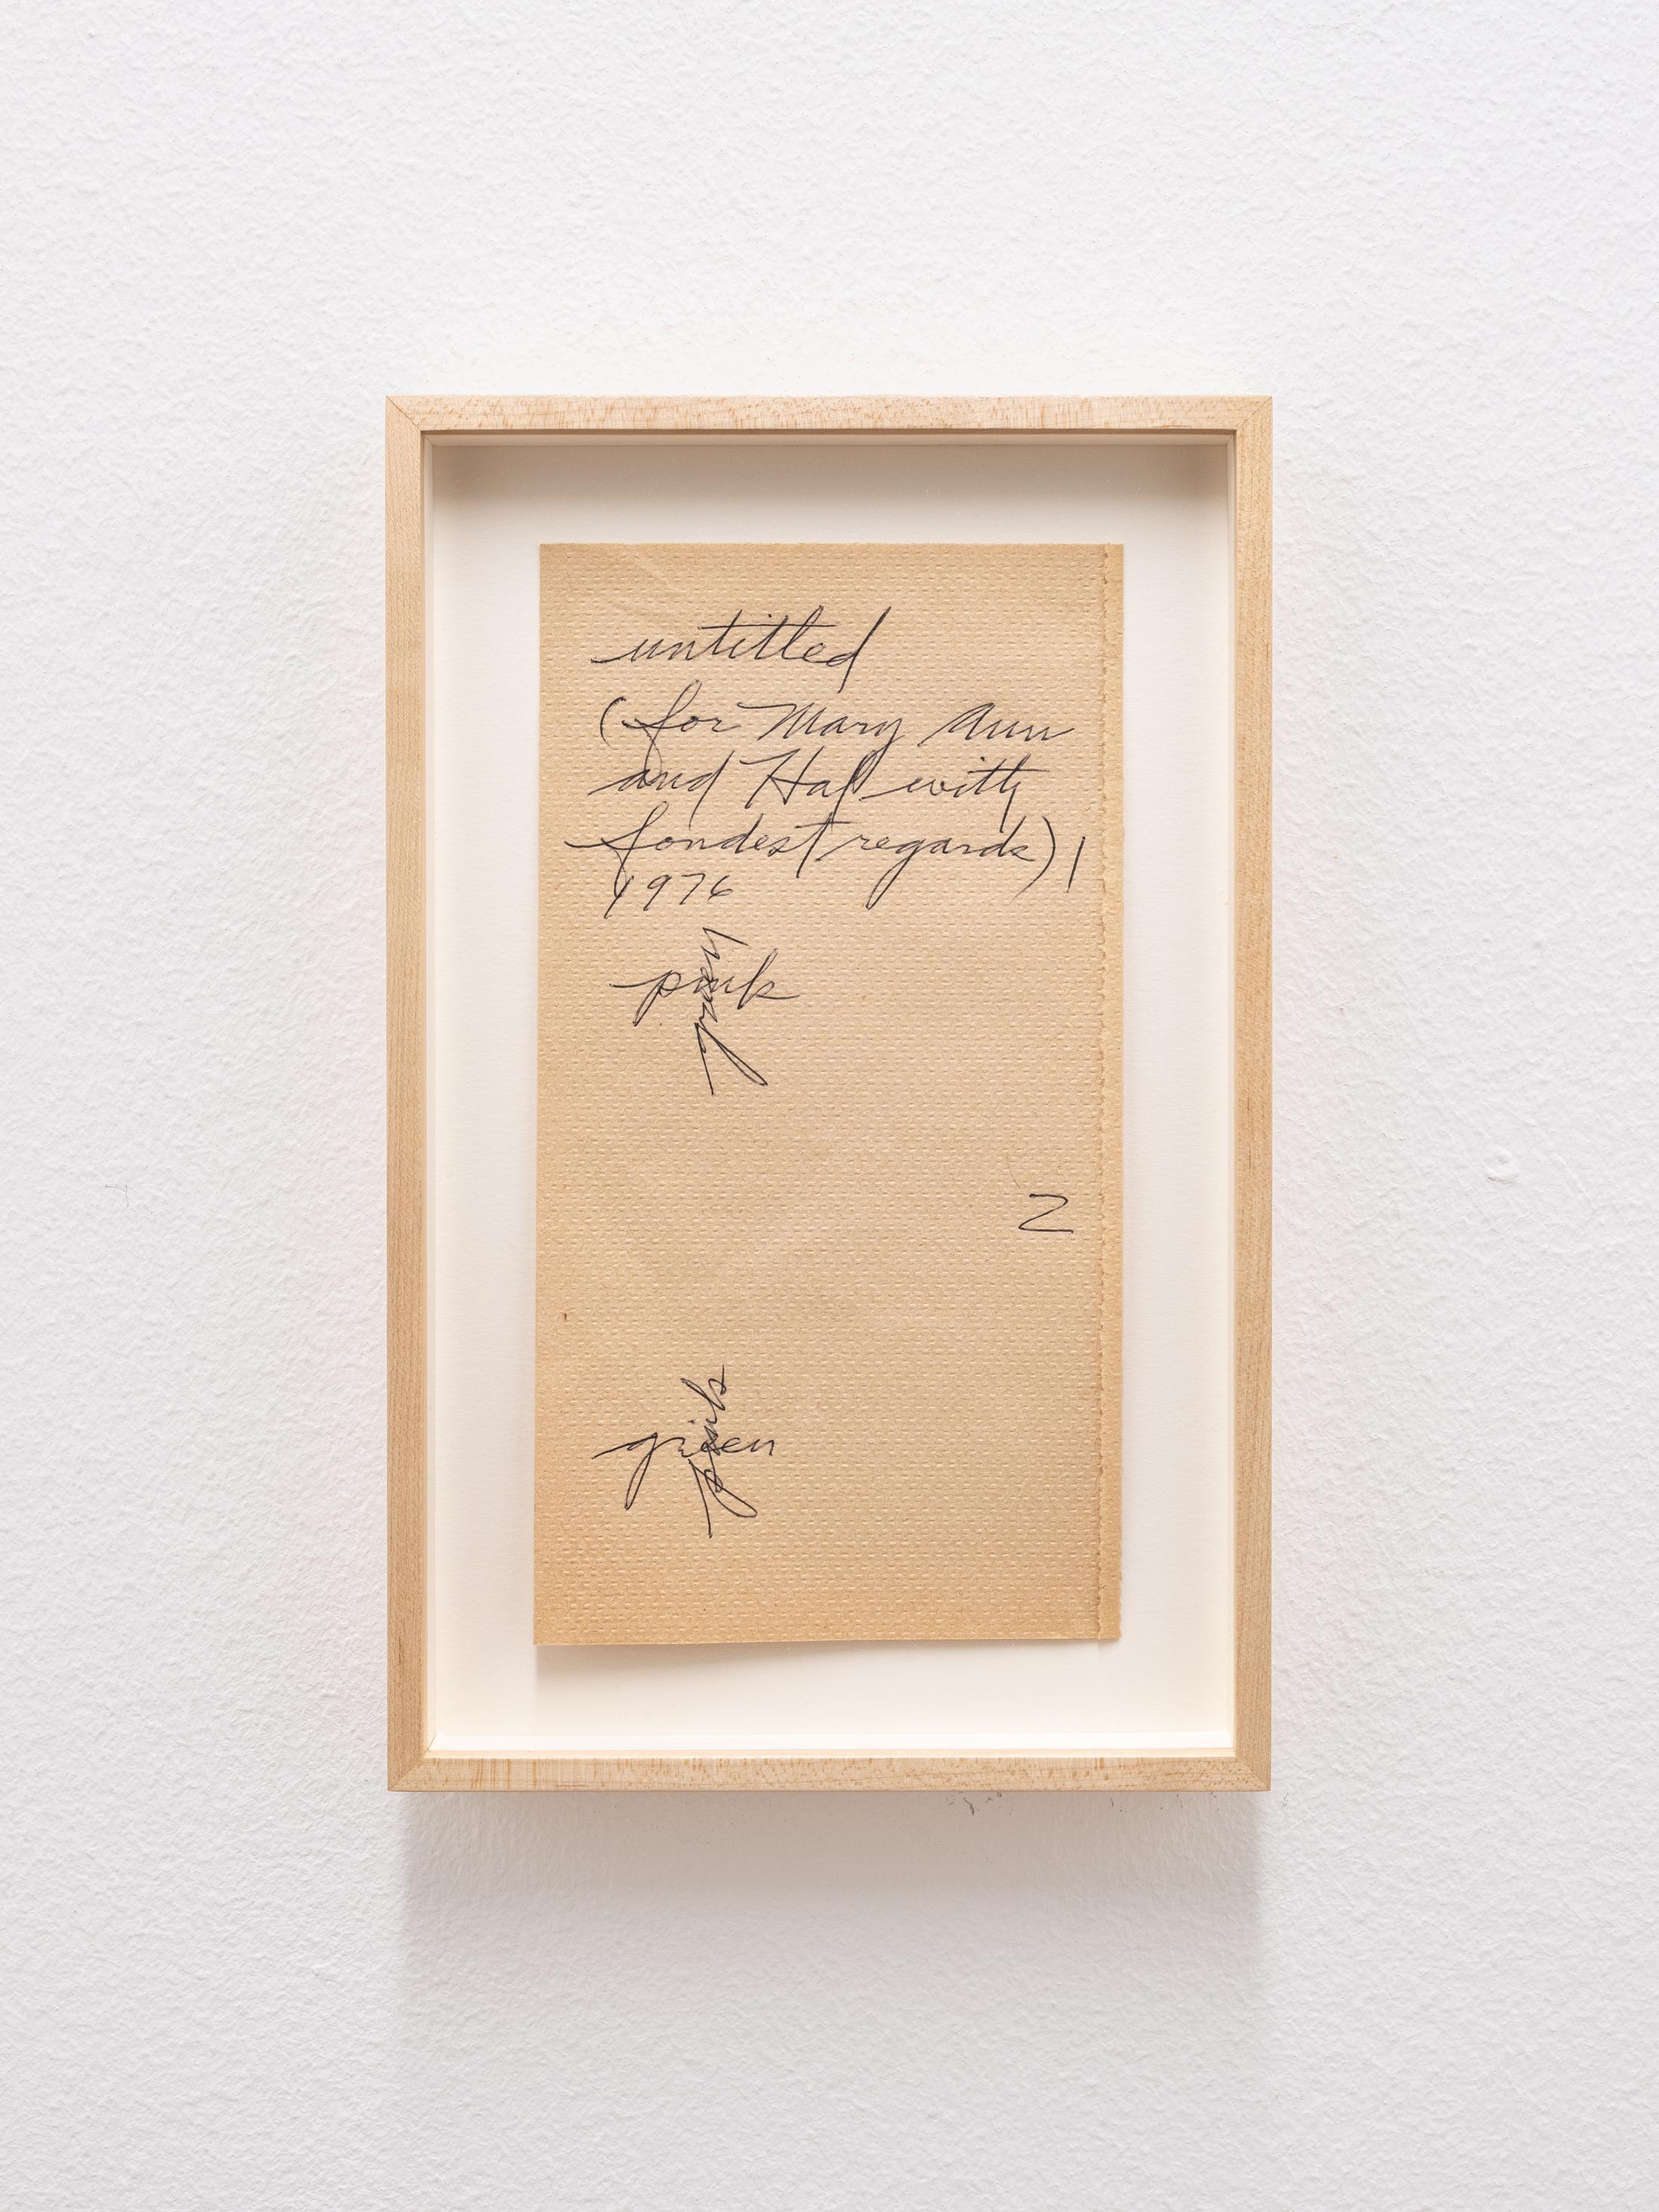 untitled
(for Mary Ann
and Hal with
fondest regards) 1
1976
pink
green
2
green
pink